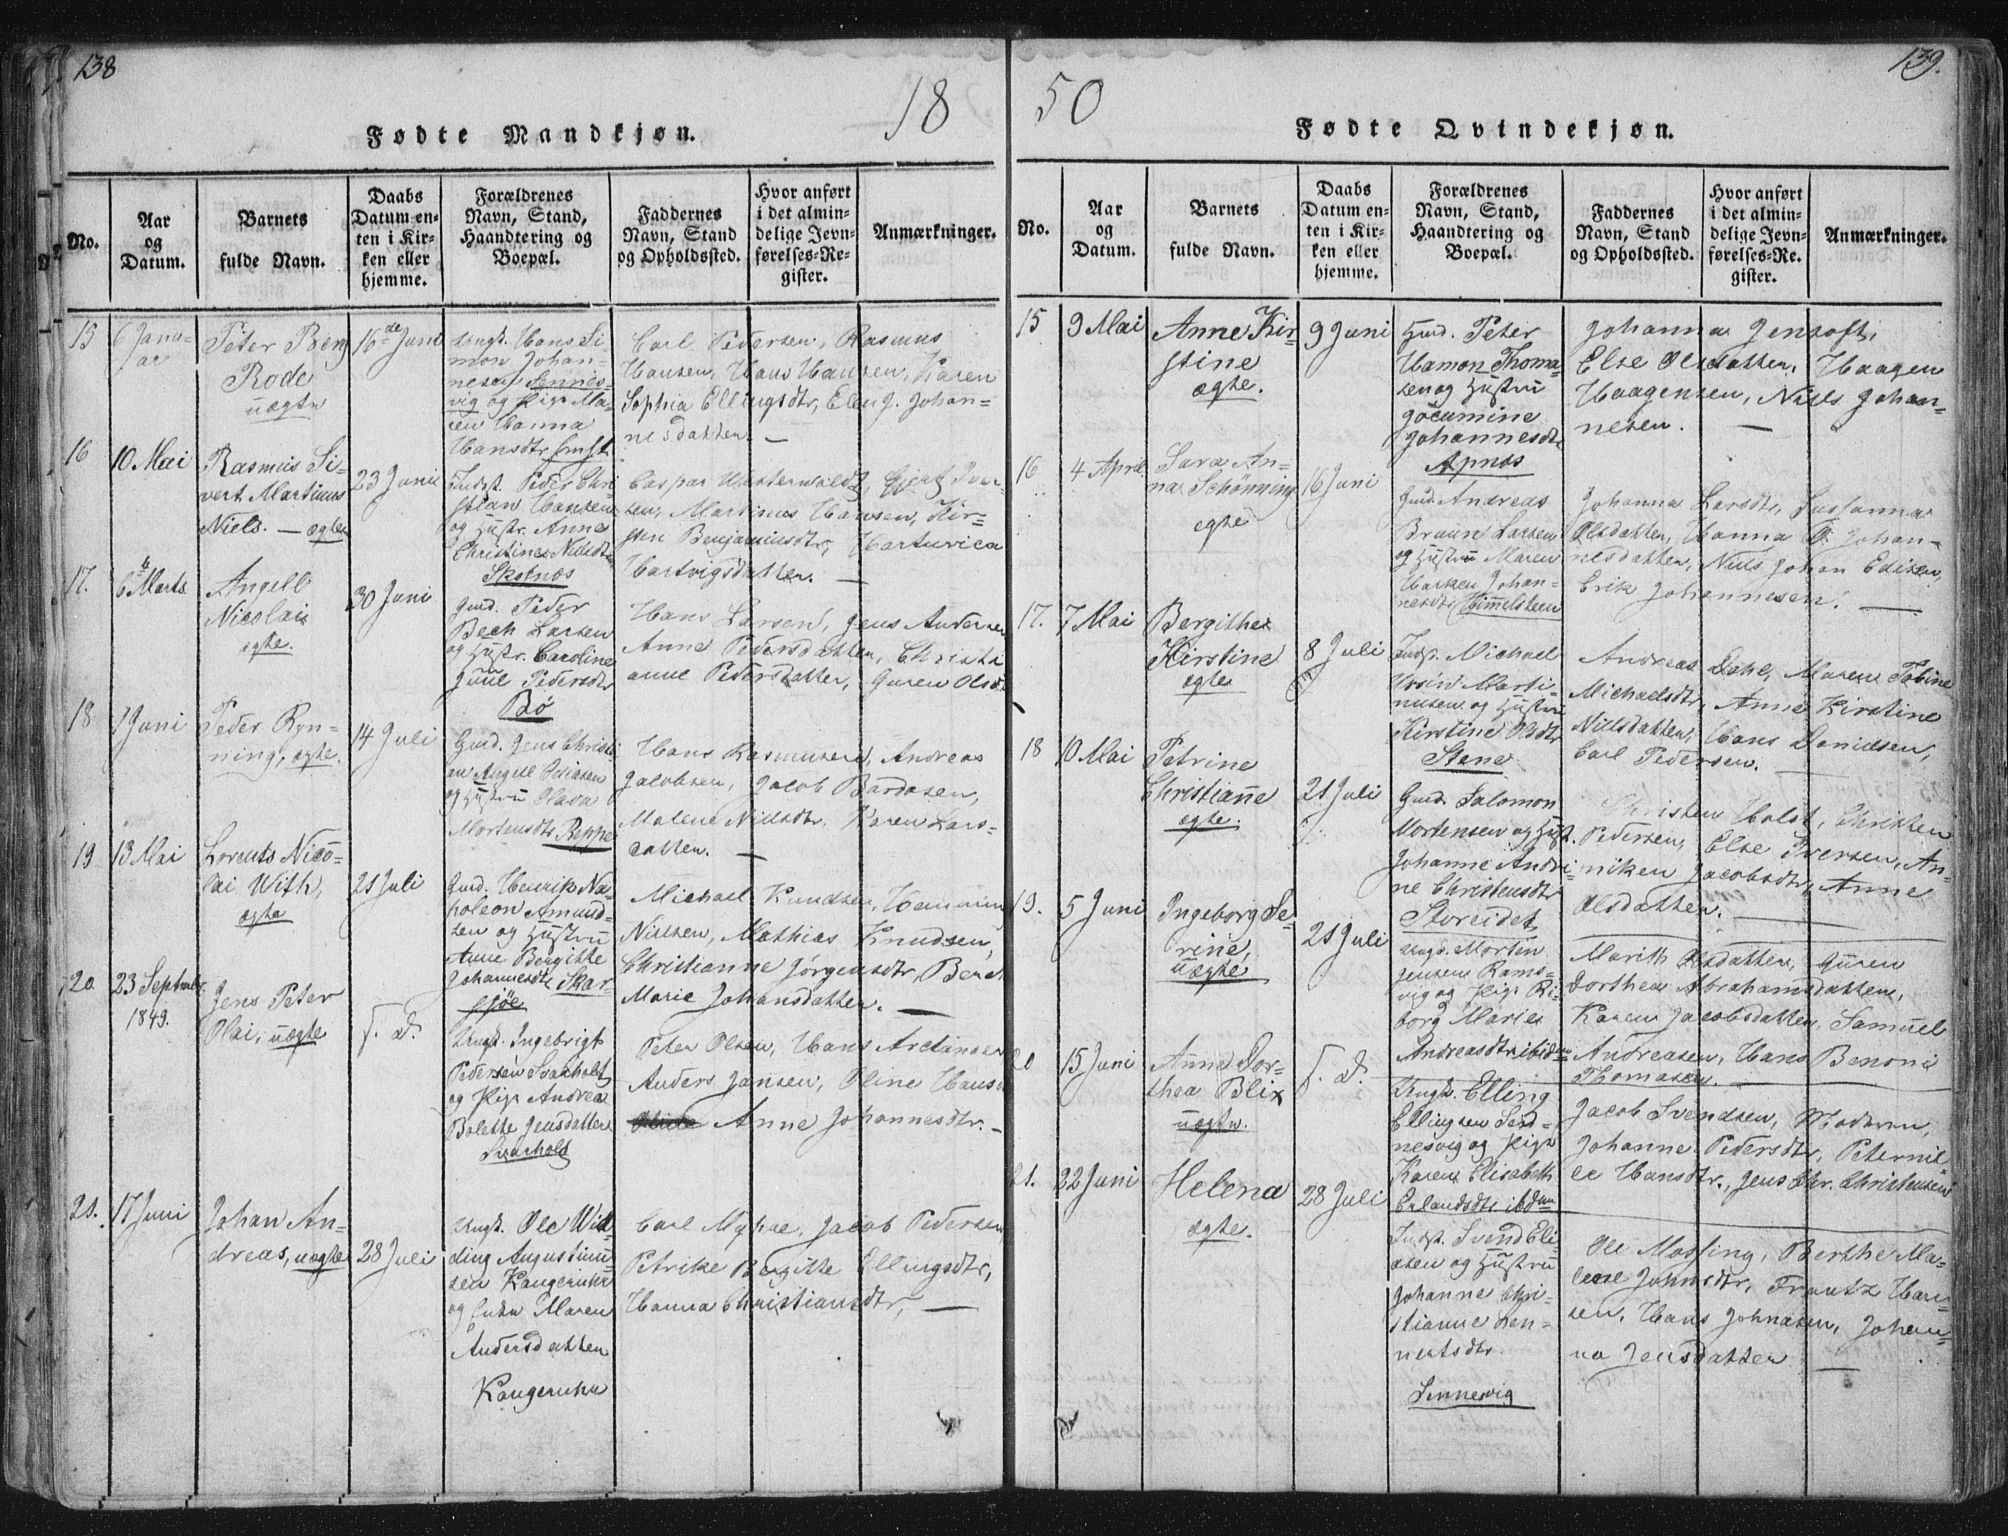 138
18
Fødte Mandkjøn.
No.
Aar
og
Datum.
Barnets
fulde Navn.
Daabs
Datum en-
ten i Kir-
ken eller
hjemme.
Forældrenes
Navn, Stand,
Haandtering og
Boepæl.
Faddernes
Navn, Stand
og Opholdssted.
Hvor anført
i det almin-
delige Jevn-
førelses-Re-
gister.
Anmærkninger.
15
6 Janu-
ar
Peter Benj
Rode
uægte
16de Juni
Ungk. Hans Si-
mon Johan-
nesen Sennes-
vig og Pige Ma-
ren Hanna
Hansdtr
Carl Pedersen, Rasmus
Hansen, Hans Hansen, Karen
Sophia Ellingsdtr, Elen J. Johan-
nesdatter. —
16
10 Mai
Rasmus Si-
vert Martinus
Niels. — ægte
23 Juni
Indst. Peder Chri-
stian Hansen
og Hustr. Anne
Christine Nilsdtr
Skotnæs
Caspar Westerwaldt, Gjert Iver-
sen, Martinus Hansen, Kir-
sten Benjaminsdtr, Hartvica
Hartvigsdatter. —
17.
6 Marts
Angell
Nicolai
ægte.
30 Juni
Gmd. Peder
Bech Larsen
og Hustr. Caroline
Juul Pedersdtr
Bø
Hans Larsen, Jens Andersen
Anne Pedersdatter, Christi
anne Pedersdatter, Guren Olsd
18
1 Juni
Peder Ryn-
ning, ægte.
14 Juli
Gmd. Jens Christi
an Angell
og Hustru Olava
Mortensdtr Reppe
Hans Rasmusen, Andreas
Jacobsen, Jacob Bardosen,
Malene Nilsdtr. Karen Lars-
datter. —
19
13 Mai
Lorents Nico-
lai With,
ægte
21 Juli
Gmd. Henrik Na-
poleon Amund-
sen og Hustru
Anne Bergitte
Johannesdtr Skar-
sjøe
Michael Knudsen, Henning
Nilsen, Mathias Knudsen
Christianne Jørgensdtr, Beret
Marie Johansdatter. —
20
23 Septmbr.
1849.
Jens Peter
Olai, uægte
s. d.
Ungk. Ingebrigt
Pedersen Svarholt
og Pige Andrea
Bolette Jensdatter
Svarholt
Peter Olsen, Hans Arctander
Anders Jansen, Oline Hansd
Anne Johannesdtr. —
21.
17 Juni
Johan An-
dreas, uægte
28 Juli
Ungk. Ole Wid
ding Augustinu-
sen Kangeruhr
og Enke Maren
Andersdatter
Kangeruhr
Carl Myhre, Jacob Pedersen
Petrike Bergitte Ellingsdtr,
Hanna Christiansdtr, —
139.
50
Fødte Qvindekjøn.
No.
Aar
og
Datum.
Barnets
fulde Navn.
Daabs
Datum en-
ten i Kir-
ken eller
hjemme.
Forældrenes
Navn, Stand,
Haandtering og
Boepæl.
Faddernes
Navn, Stand
og Opholdssted.
Hvor anført
i det almin-
delige Jevn-
førelses-Re-
gister.
Anmærkninger.
15
9 Mai
Anne Kir-
stine
ægte.
9 Juni
Gmd. Peter
Hamon Thoma-
sen og Hustru
Jocumine
Johannesdtr
Apnes
Johanna Jentoft,
Else Olsdatter, Haagen
Haagensen, Niels Johan-
nesen. —
16
4 April
Sara An-
na Schønning
ægte
16 Juni
Gmd. Andreas
Bruun Larsen
og Hustru Maren
Johan-
nesdtr Himmelsteen
Johanna Larsdtr, Susanna
Olsdatter, Hanna O. Johan-
nesdatter, Niels Johan Edisen,
Erik Johannesen. —
17.
7 Mai
Bergithe
Kirstine
ægte
8 Juli
Indst. Michael
Ursin Marti-
nusen og Hustru
Kirstine Olsdtr
Stene
Andreas Dahl, Maren Tobine
Michaelsdtr, Anne Kirstine
Nilsdatter, Hans Danielsen,
Carl Pedersen. —
18
10 Mai
Petrine
Christianne
ægte.
21 Juli
Gmd. Salomon
Mortensen og Hust.
Johanne Andri-
ne Christensdtr
Storeidet
Christen Holst, Christen
Pedersen, Else Iversen, An-
niken Jacobsdtr, Anne
Olsdatter. —
19.
5 Juni
Ingeborg Se-
rine,
uægte
21 Juli
Ungk. Morten
Jensen Rams-
vig og Pige Ri-
borg Marie
Andreasdtr ibidem
Marith Olsdatter, Guren
Dorthea Abrahamsdatter,
Karen Jacobsdatter, Samuel
Andreasen, Hans Benoni
Thomasen.
20
15 Juni
Anna Dor-
thea Blix
uægte.
s. d.
Ungk. Elling
Ellingsen Sen-
nesvig og Pige
Karen Elisabeth
Erlandsdtr
Jacob Svendsen, Moderen,
Johanne Pedersdtr, Peternil-
le Hansdtr., Jens Chr. Christensen
21.
22 Juni
Helena
ægte.
28 Juli
Indst. Svend Eli-
asen og Hustru
Johanne Chri-
stianne Len-
nertsdtr
Sennesvig
Ole Mossing, Berthe Ma-
lene Johnsdtr, Frantz Han-
sen, Hans Johnasen, Johan-
na Jensdatter —